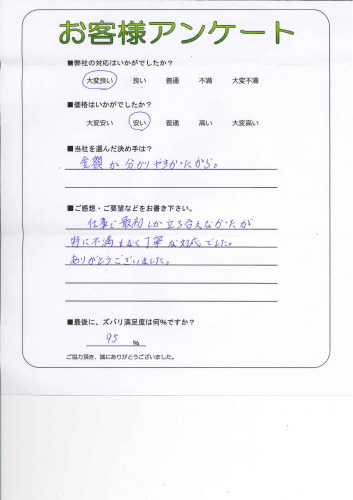 お客様アンケート
■弊社の対応はいかがでしたか?
大変良い 良い 普通 不満 大変不満
■価格はいかがでしたか?
大変安い 安い 普通 高い 大変高い
■当社を選んだ決め手は?
金額が分かりやすかったから。
■ご感想・ご要望などをお書き下さい。
仕事で最初しか立ち合えなかったが
特に不満もなく丁寧な対応でした。
ありがとうございました。
■最後に、ズバリ満足度は何%ですか?
95 %
ご協力頂き、誠にありがとうございました。